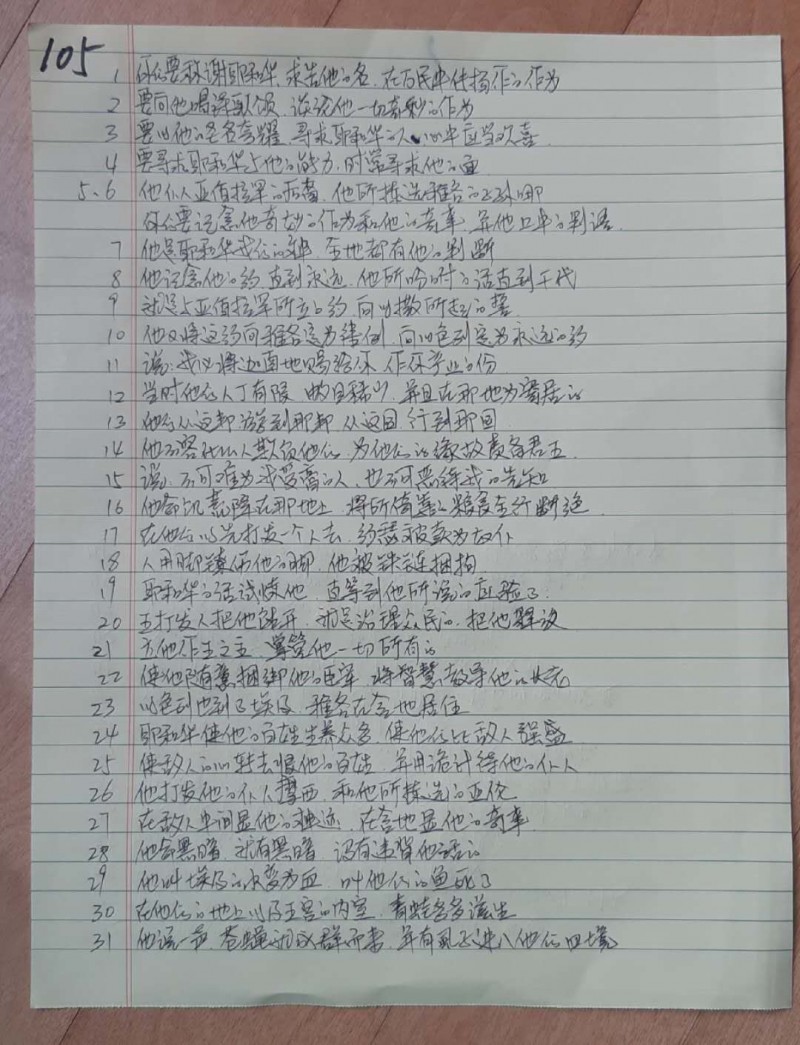 105
1 你们要称谢耶和华,求告他的名,在万民中传扬他的作为
2 要向他唱诗歌颂,谈论他一切奇妙的作为
3 要以他的圣名夸耀,寻求耶和华的人,心中应当欢喜
4 要寻求耶和华与他的能力,时常寻求他的面
5.6 他仆人亚伯拉罕的后裔,他所拣选雅各的子孙哪
你们要记念他奇妙的作为和他的奇事,并他口中的判语
7 他是耶和华我们的神,全地都有他的判断
8 他记念他的约,直到永远,他所吩咐的话直到千代
9 就是与亚伯拉罕所立的约,向以撒所起的誓
10 他又将这约向雅各定为律例,向以色列定为永远的约
11 说:我必将迦南地赐给你,作你产业的份
12 当时他们人丁有限,数目稀少,并且在那地为寄居的
13 他们从这邦游到那邦,从这国行到那国
14 他不容什么人欺负他们,为他们的缘故责备君王
15 说:不可难为我受膏的人,也不可恶待我的先知
16 他命饥荒降在那地上,将所倚靠的粮食全行断绝
17 在他们以先打发一个人去,约瑟被卖为奴仆
18 人用脚镣伤他的脚,他被铁链捆拘
19 耶和华的话试炼他,直等到他所说的应验了.
20 王打发人把他解开,就是治理众民的,把他释放
21 立他作王之主,掌管他一切所有的
22 使他随意捆绑他的臣宰,将智慧教导他的长老
23 以色列也到了埃及,雅各在含地居住
24 耶和华使他的百姓生养众多,使他们比敌人强盛
25 使敌人的心转去恨他的百姓,并用诡计待他的仆人
26 他打发他的仆人摩西,和他所拣选的亚伦
27 在敌人中间显他的神迹,在含地显他的奇事
28 他命黑暗,就有黑暗,没有违背他话的
29 他叫埃及的水变为血,叫他们的鱼死了
30 在他们的地上以及王宫的内室,青蛙多多滋生
31 他说一声,苍蝇就成群而来,并有虱子进入他们四境